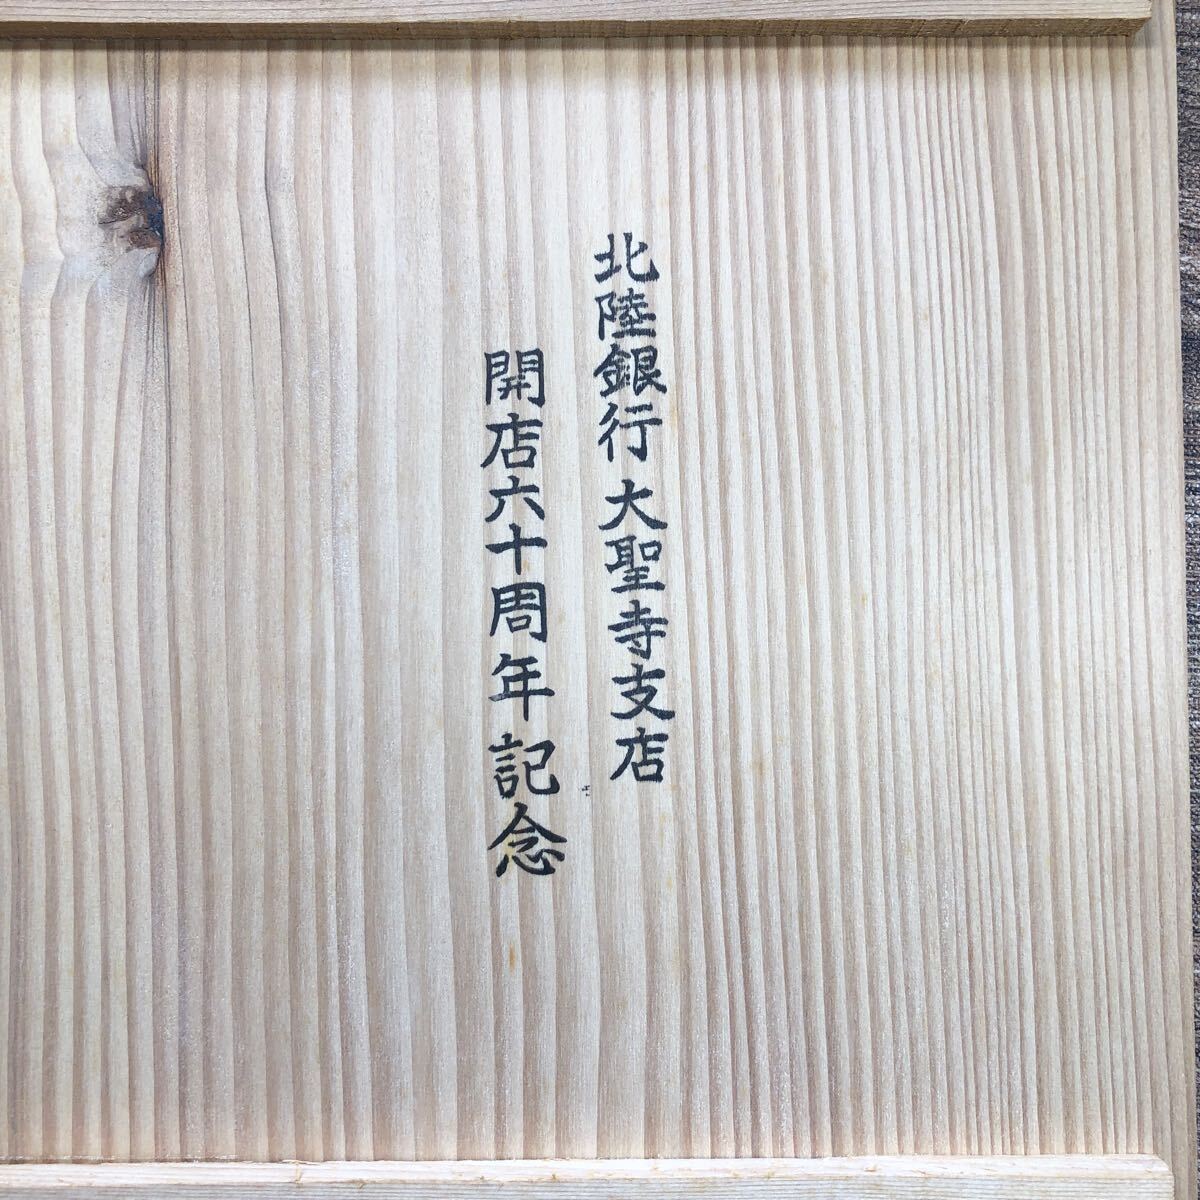 北陸銀行 大聖寺支店
開店六十周年記念